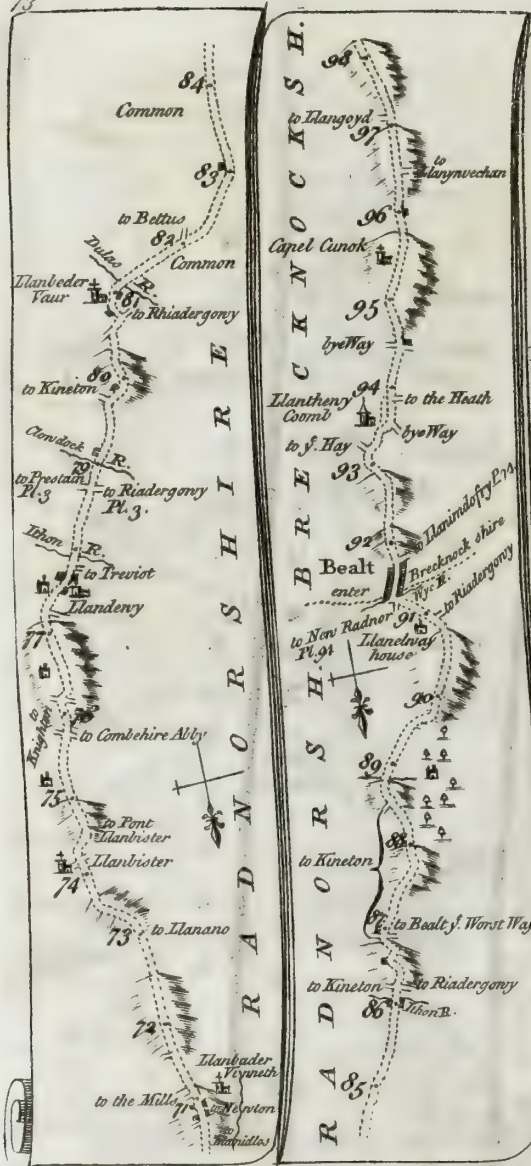 73
84
Common
83
to Bettus
82
Dulas
R.
Common
Llanbeder
Vaur
81
to Rhiadergowy
80
to Kineton
Clowdock
R.
79
to Prestain
Pl.3
to Riadergowy
Pl.3.
Ithon
R.
to Treviot
Llandewy
77
to
Knighton
76
to Combehire Abby
75
to Pont
Llanbister
Llanbister
74
73
to Llanano
72
Llanbader
Vynneth
to the Mills
71
to Newton
to
RADNORSHIRE
98
to Llangoyd
97
to
Llanynvechan
96
Capel Cunok
95
bye Way
94
to the Heath
Llantheny
Coomb
bye Way
to ye. Hay
93
92
to Llanimdofry P.
Bealt
enter
Brecknock shire
Wye R.
to Riadergowy
91
to New Radnor
Pl.91
Llanelway
house
90
89
88
to Kineton
87
to Bealt ye. Worst Way
to Kineton
to Riadergowy
86
Ithon R.
85
BRECKNOCKSH.
RADNORSH